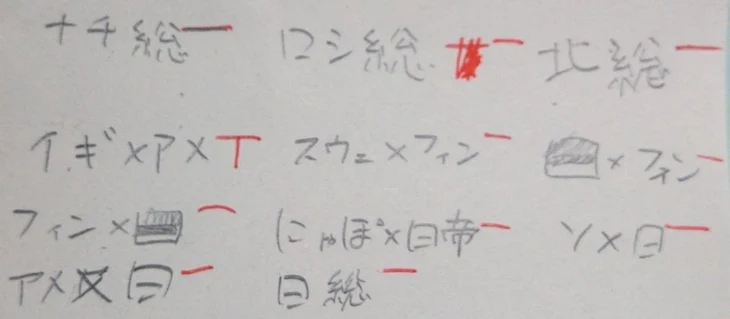 ナチ総ー ロシ総ー 北総ー
イギ×アメー スウェ×フィンー ×フィンー
フィン×ー にゃぽ×日帝ー ソ×日ー
ア××日ー 日総ー